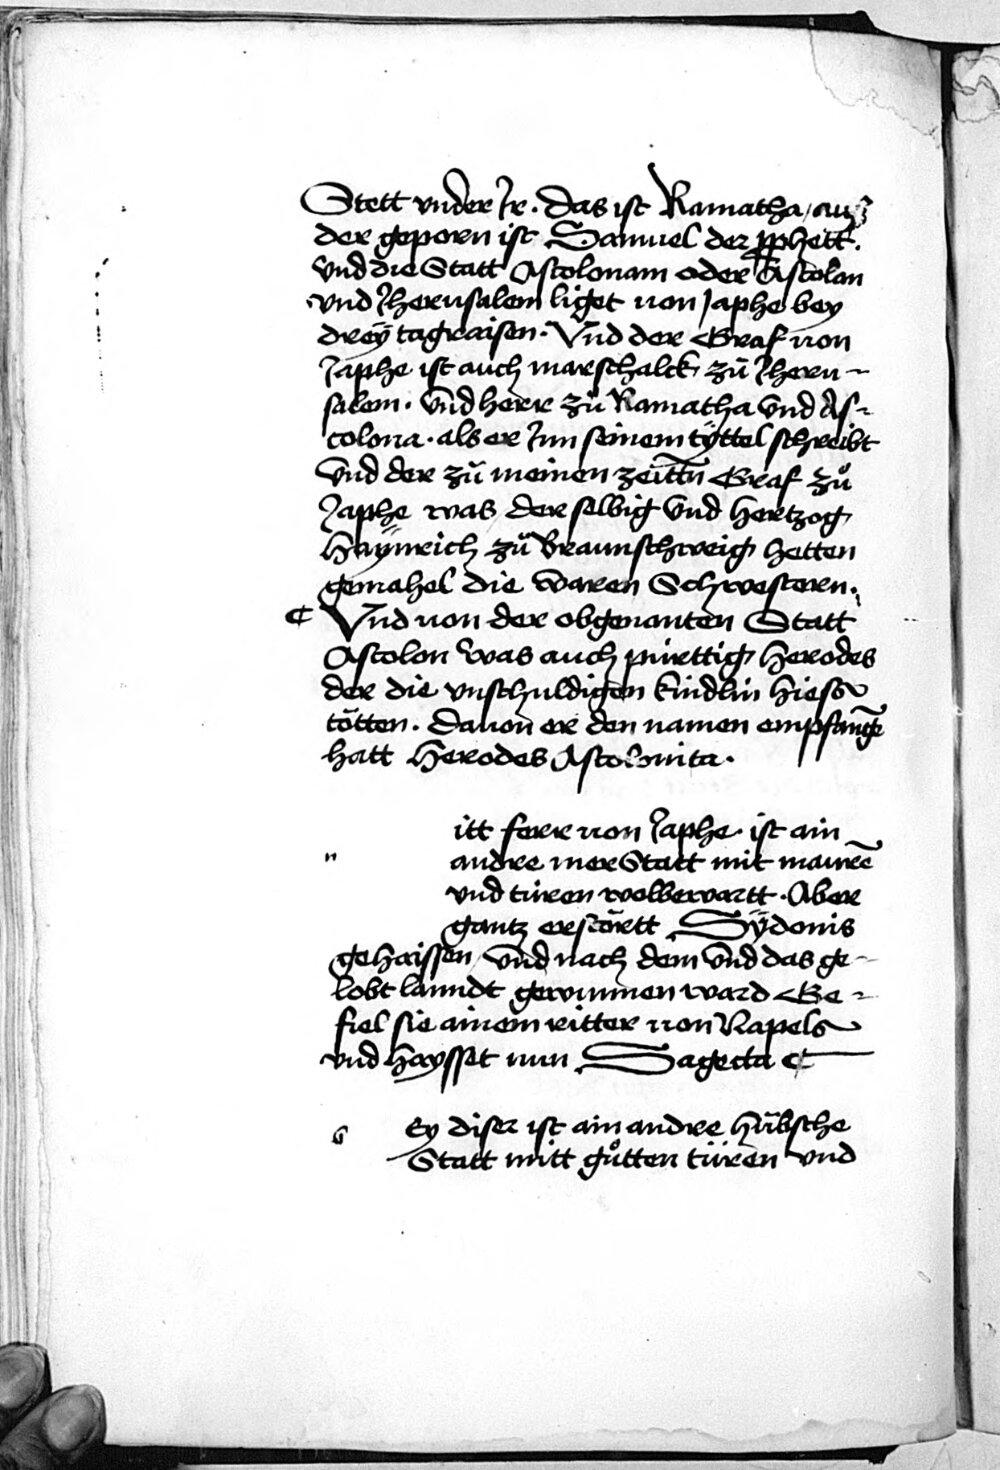 Stett vnder Ir. Das ist Ramatha / auß
der geporn ist Samuel der pphett.
vnd die Statt Ascolonam oder Ascolon
vnd Jherusalem liget von Japhe bey
dreÿ tagraisen. Vnd der Graf von
Japhe ist auch marschalck zů Jheru-
salem. vnd herr zů Ramatha vnd As-
colona. als er Inn seinem tÿttel schreibt
vnd der zů meinen zeittn Graf zů
Japhe was der selbig vnd hertzog
Haÿnrich zů Braunschweig hetten
gemahel die waren Schwestern.
¶ Vnd von der obgenanten Statt
Ascolon was auch pürttig herodes
der die vnschuldigen kindlin hiess
tötten. Dauon er den namen empfange
hatt Herodes Ascolonita.
itt ferr von Japhe ist ain
n andre mer Statt mit maurē
vnd türen wolbewartt. Aber
gantz erstörtt Sÿdonis
gehaissen / vnd nach dem vnd das ge-
lobt lanndt gewunnen ward Ge-
fiel sie ainem ritter von Napels
vnd haysset nun Sagecta ¶
b Ey diser ist ain andre hübsche
Statt mitt gůtten türen vnd